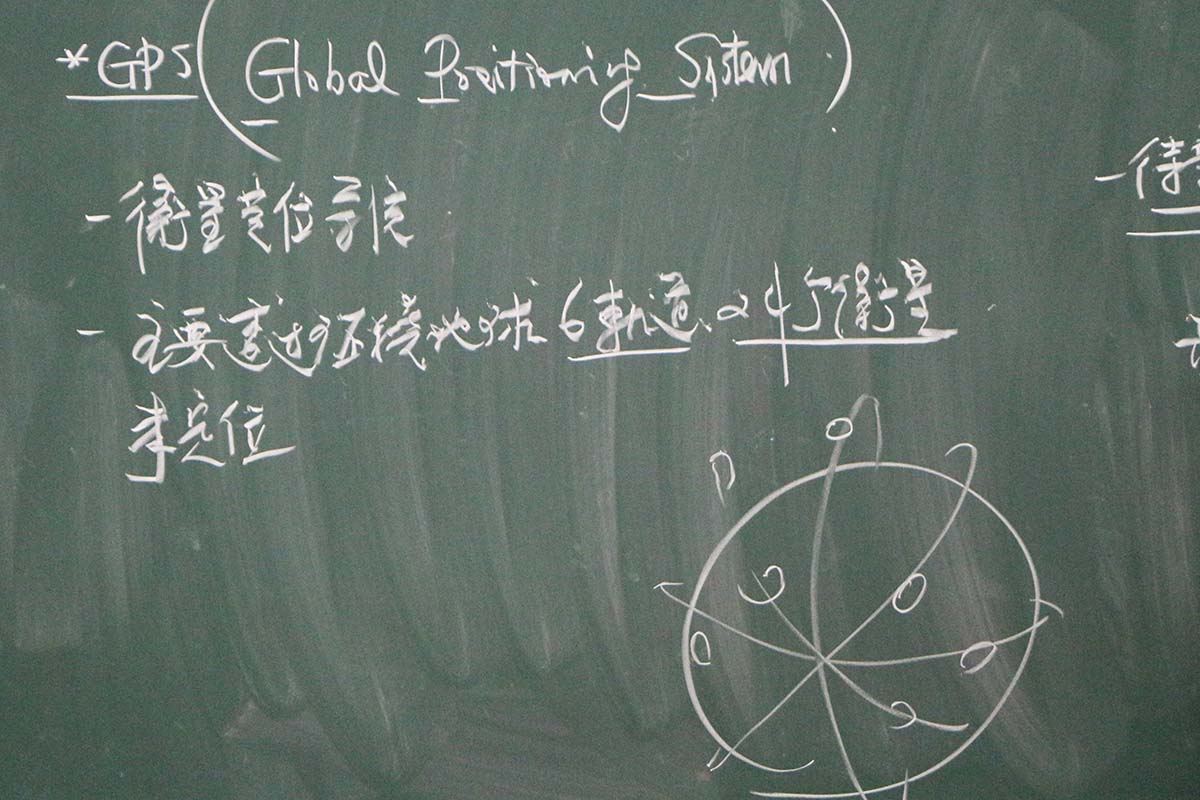 *GPS(Global Positioning System)
-衛星定位系統
-主要透過环繞地球6軌道24个衛星
來定位
-待